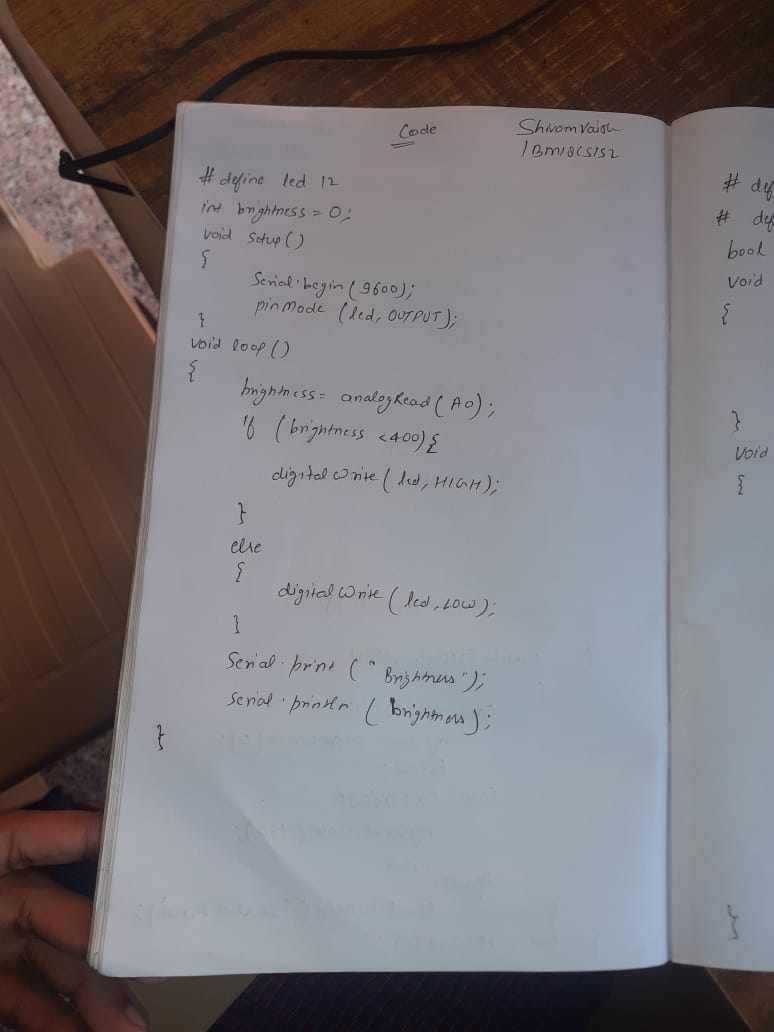 Code
Shivom Vaish
1BM18CS152
#define led 12
int brightness = 0;
void setup()
{
Serial.begin(9600);
pinMode (led, OUTPUT);
}
void loop()
{
brightness = analogRead(A0);
if (brightness <400){
digitalWrite(led, HIGH);
}
else
{
digitalWrite(led, LOW);
}
Serial.print("Brightness");
Serial.println(brightness);
}
# def
# def
bool
void
{
}
void
{
}